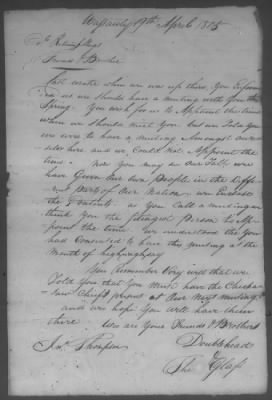 19th April 1805
Friend & Brother
last winter when we was up there, You Informed
us we should have a meeting with You this
Spring. You ask for us to Appoint the time
when we should meet You but we Told You
we were to have a meeting Amongst our
selves here and we Could Not Appoint the
time. Now You may see Our Talk we
have Given Our Own People in the Different
Parts of Our Nation. we Enclose
the Contents. as You Call a meeting we
think You the Person to Appoint
the time. we understood that You
had Consented to have this meeting at the
Mouth of
You Remember Very well that we
Told You that You must have the Chickasaw
Chiefs present at Our Next meeting
and we hope You will have them
there. We are Your Friends & Brothers
Jno. Thompson Doublehead
The Glass